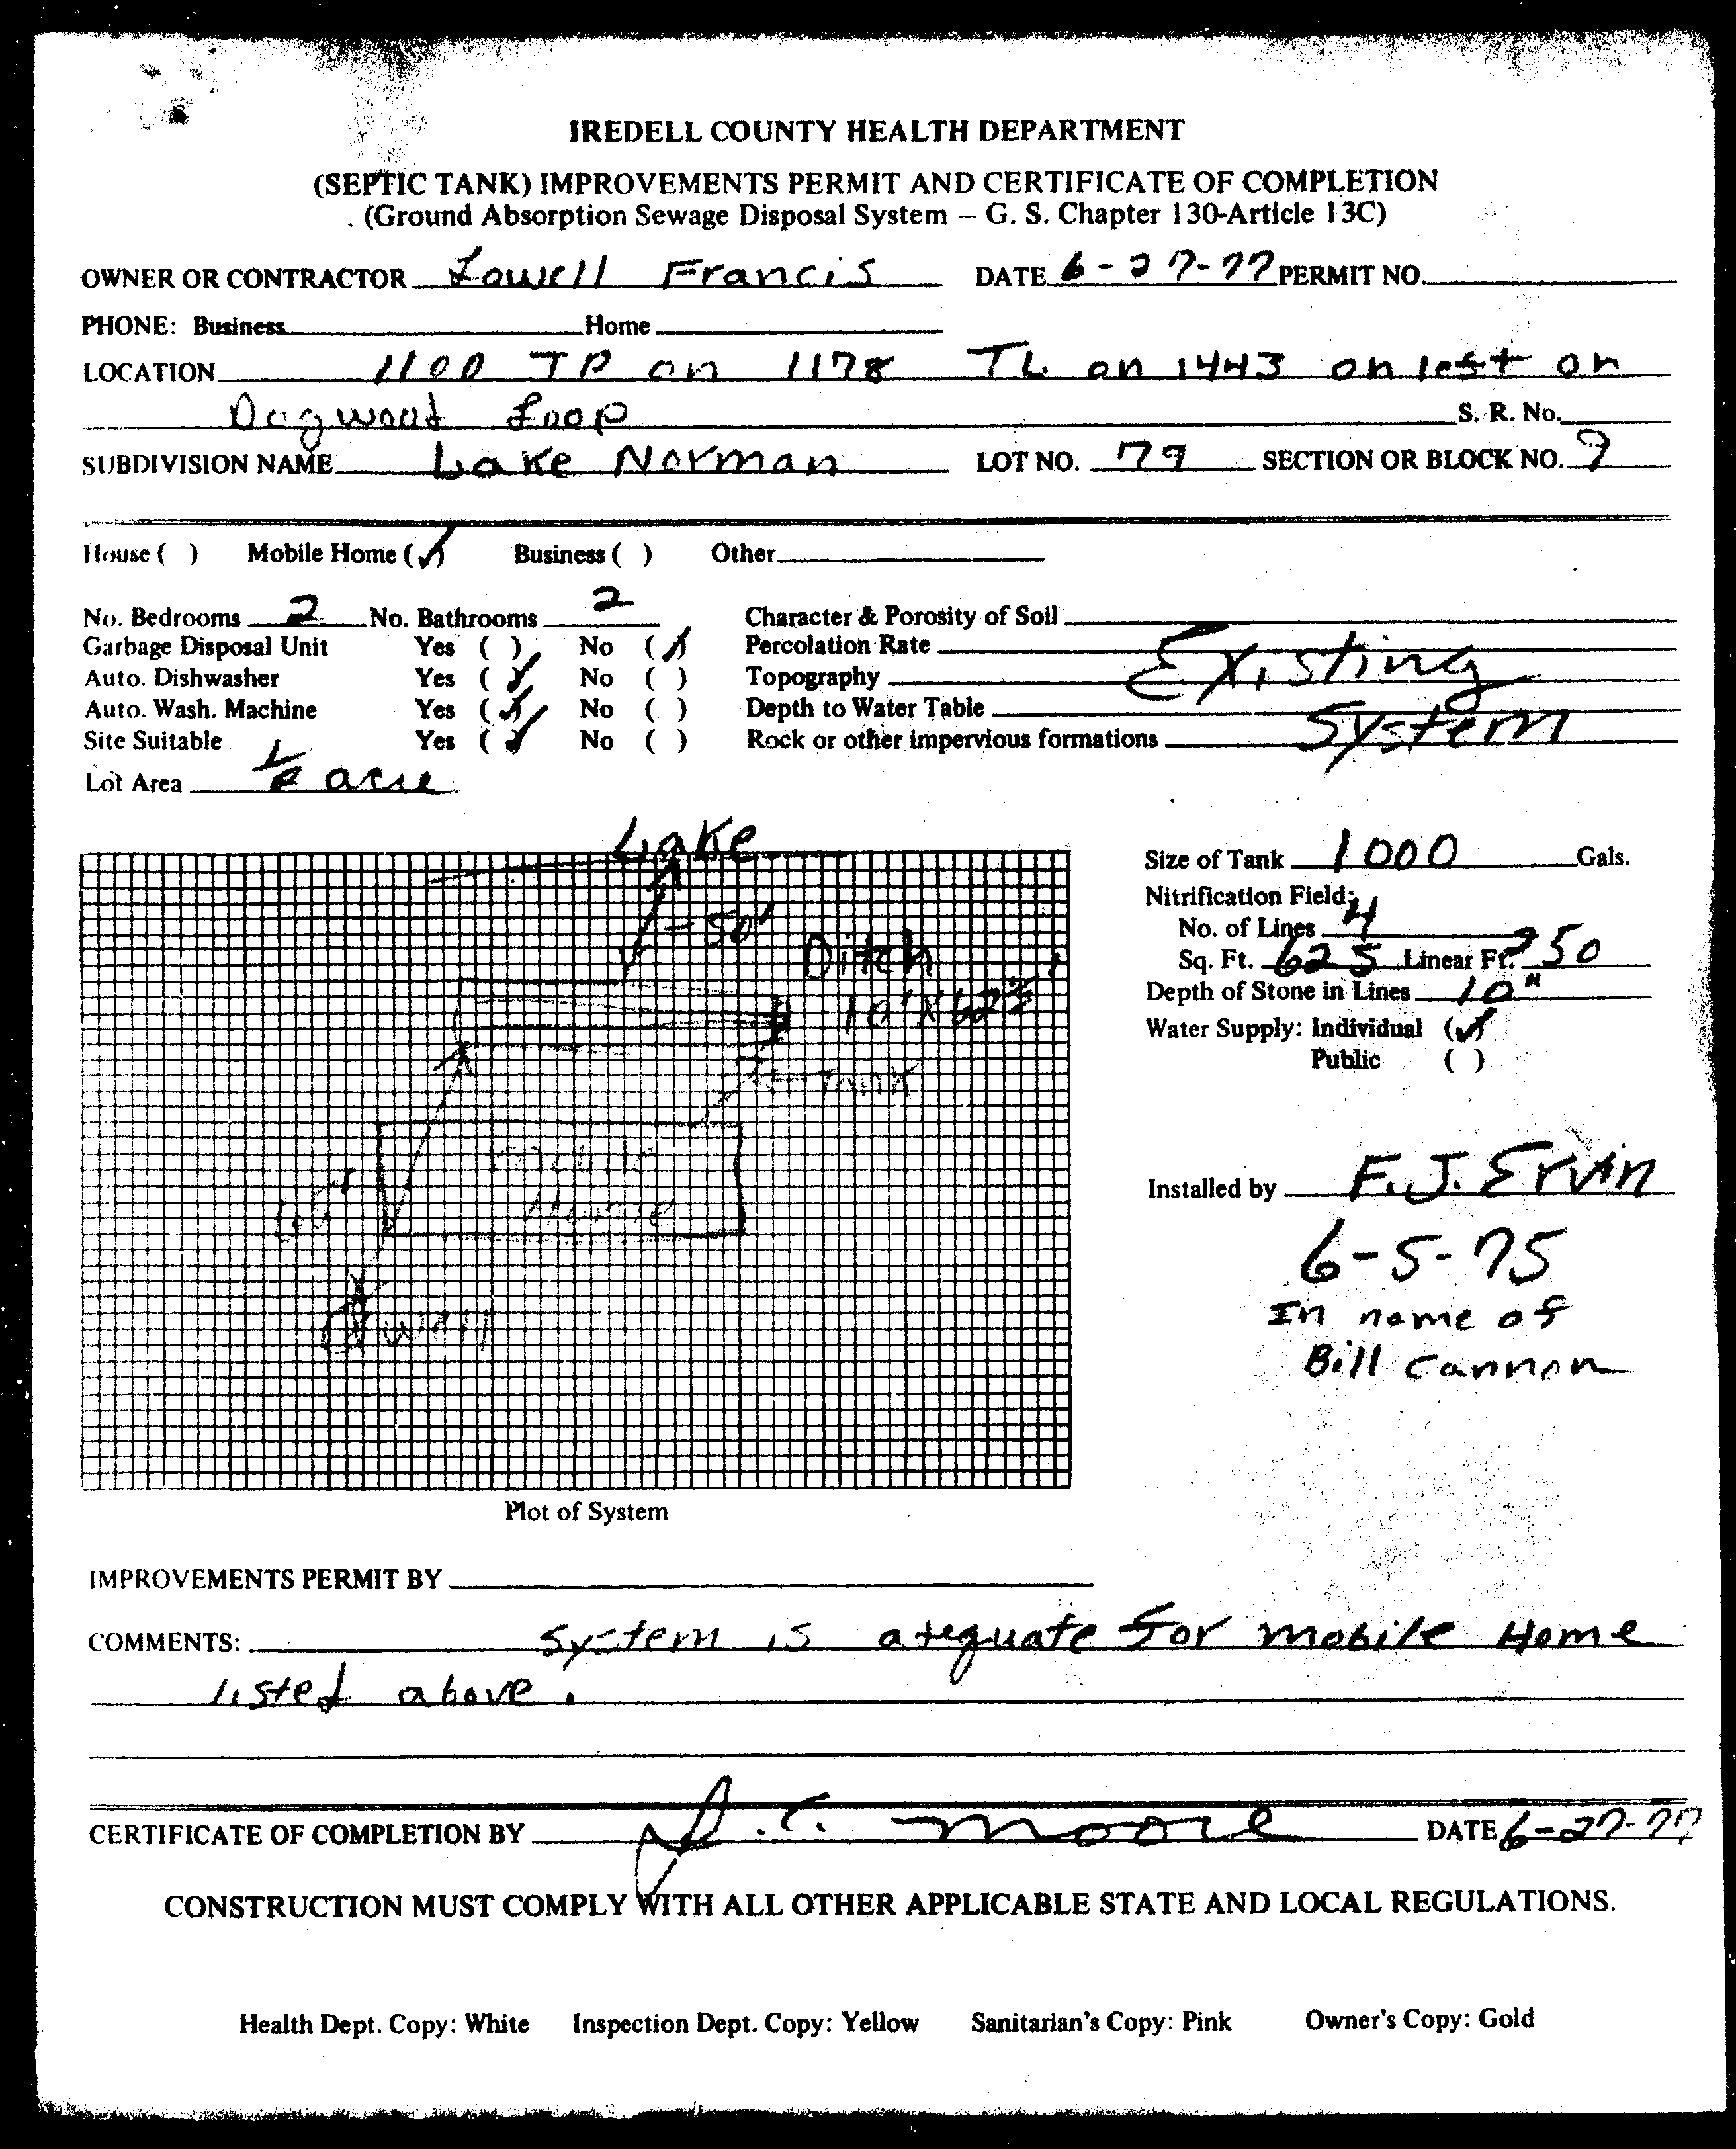 IREDELL COUNTY HEALTH DEPARTMENT
(SEPTIC TANK) IMPROVEMENTS PERMIT AND CERTIFICATE OF COMPLETION
(Ground Absorption Sewage Disposal System – G. S. Chapter 130-Article 13C)
OWNER OR CONTRACTOR Lowell Francis DATE 6-27-77 PERMIT NO.
PHONE: Business Home
LOCATION 1100 TR on 1178 TL on 1443 on left on
Dogwood Loop S. R. No.
SUBDIVISION NAME Lake Norman LOT NO. 79 SECTION OR BLOCK NO. 9
House ( ) Mobile Home (✓) Business ( ) Other
No. Bedrooms 2 No. Bathrooms 2 Character & Porosity of Soil
Garbage Disposal Unit Yes ( ) No (✓) Percolation Rate Existing
Auto. Dishwasher Yes (✓) No ( ) Topography
Auto. Wash. Machine Yes (✓) No ( ) Depth to Water Table System
Site Suitable Yes (✓) No ( ) Rock or other impervious formations
Lot Area 1/2 acre
Lake
50'
Ditch
10' X 62½
Tank
mobile
Home
well
Size of Tank 1000 Gals.
Nitrification Field:
No. of Lines 4
Sq. Ft. 625 Linear Ft. 250
Depth of Stone in Lines 10"
Water Supply: Individual (✓)
Public ( )
Installed by F.J. Ervin
6-5-75
In name of
Bill Cannon
Plot of System
IMPROVEMENTS PERMIT BY
COMMENTS: System is adequate for mobile Home
listed above.
CERTIFICATE OF COMPLETION BY J.C. Moore DATE 6-27-77
CONSTRUCTION MUST COMPLY WITH ALL OTHER APPLICABLE STATE AND LOCAL REGULATIONS.
Health Dept. Copy: White Inspection Dept. Copy: Yellow Sanitarian's Copy: Pink Owner's Copy: Gold